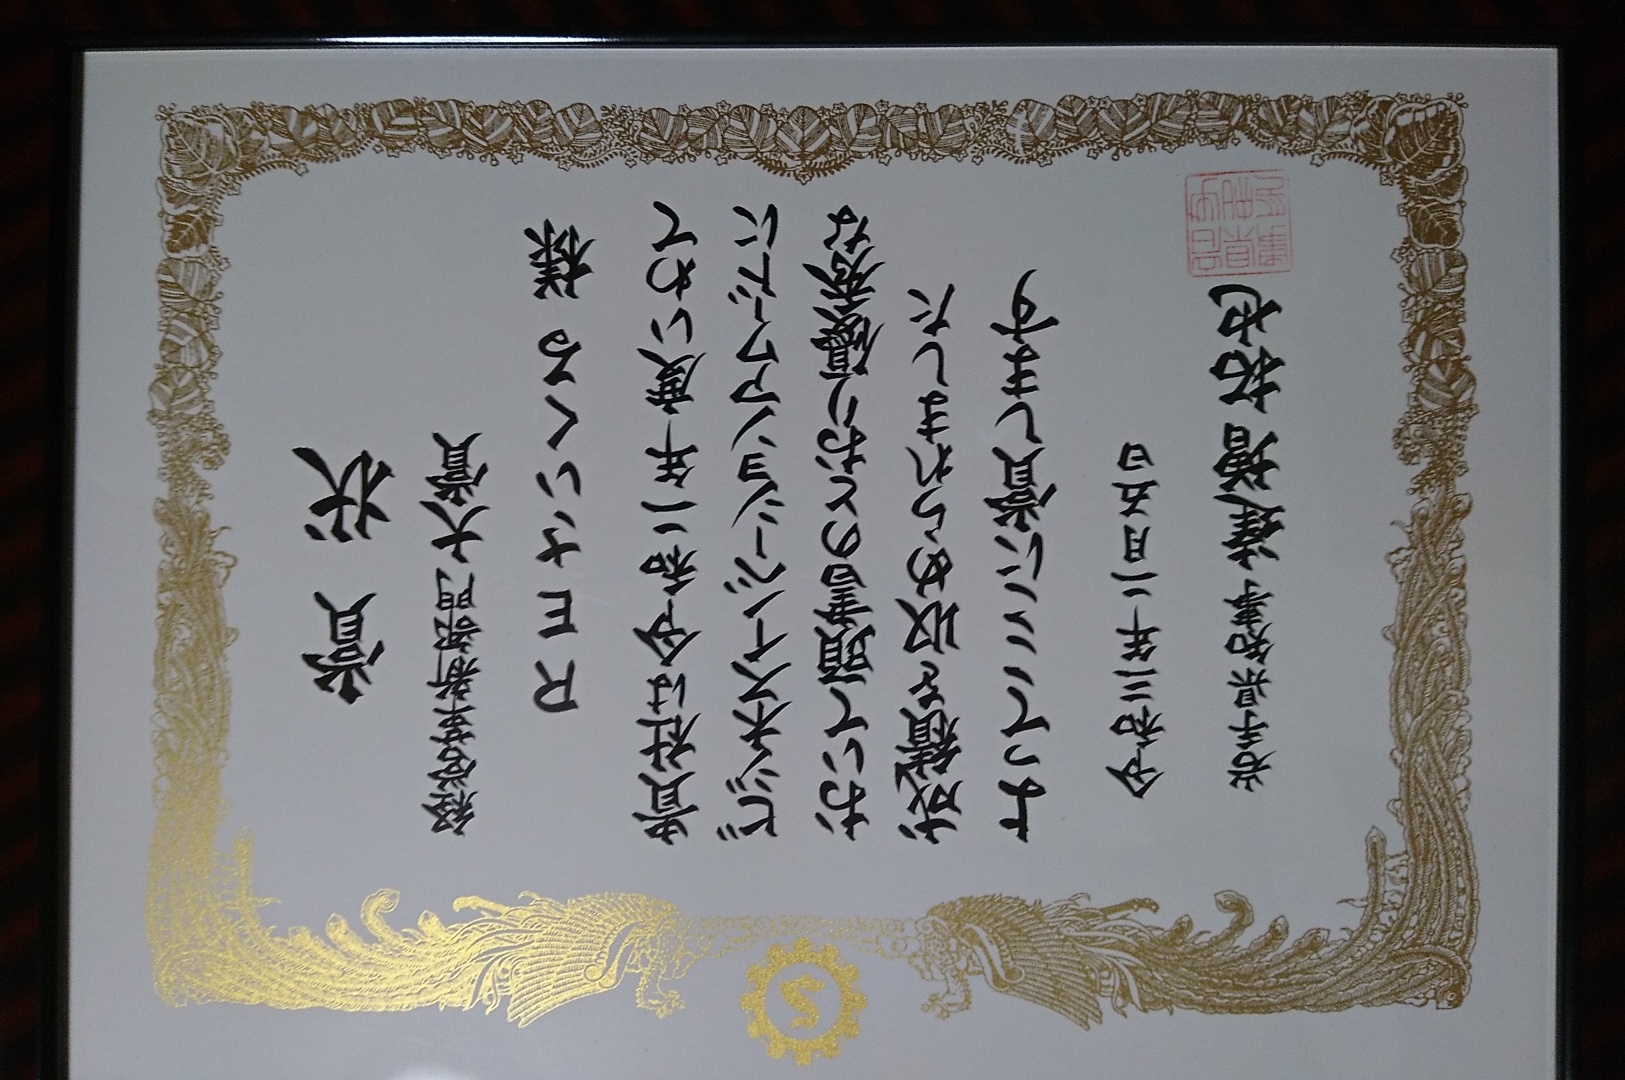 S
賞状
経営革新部門 大賞
REさいくる 様
貴社は令和二年度いわて
ビジネスイノベーションアワードに
おいて頭書のとおり優秀な
成績を収められました
よってここに賞します
令和三年二月五日
岩手県知事 達増拓也
岩手
県知
事印